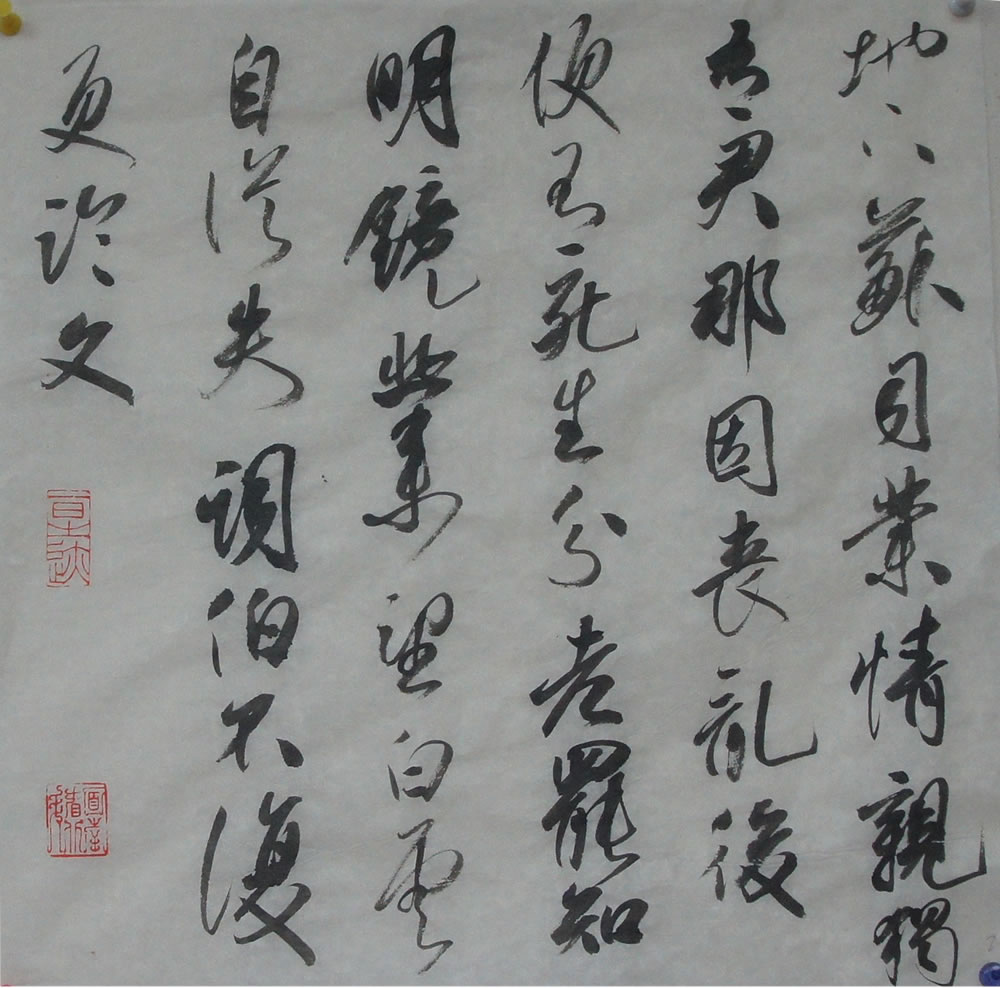 地下蘇司業情親獨
有君那因喪乱後
便有死生分老罷知
明鏡悲來望白雲
自從失詞伯不復
更論文